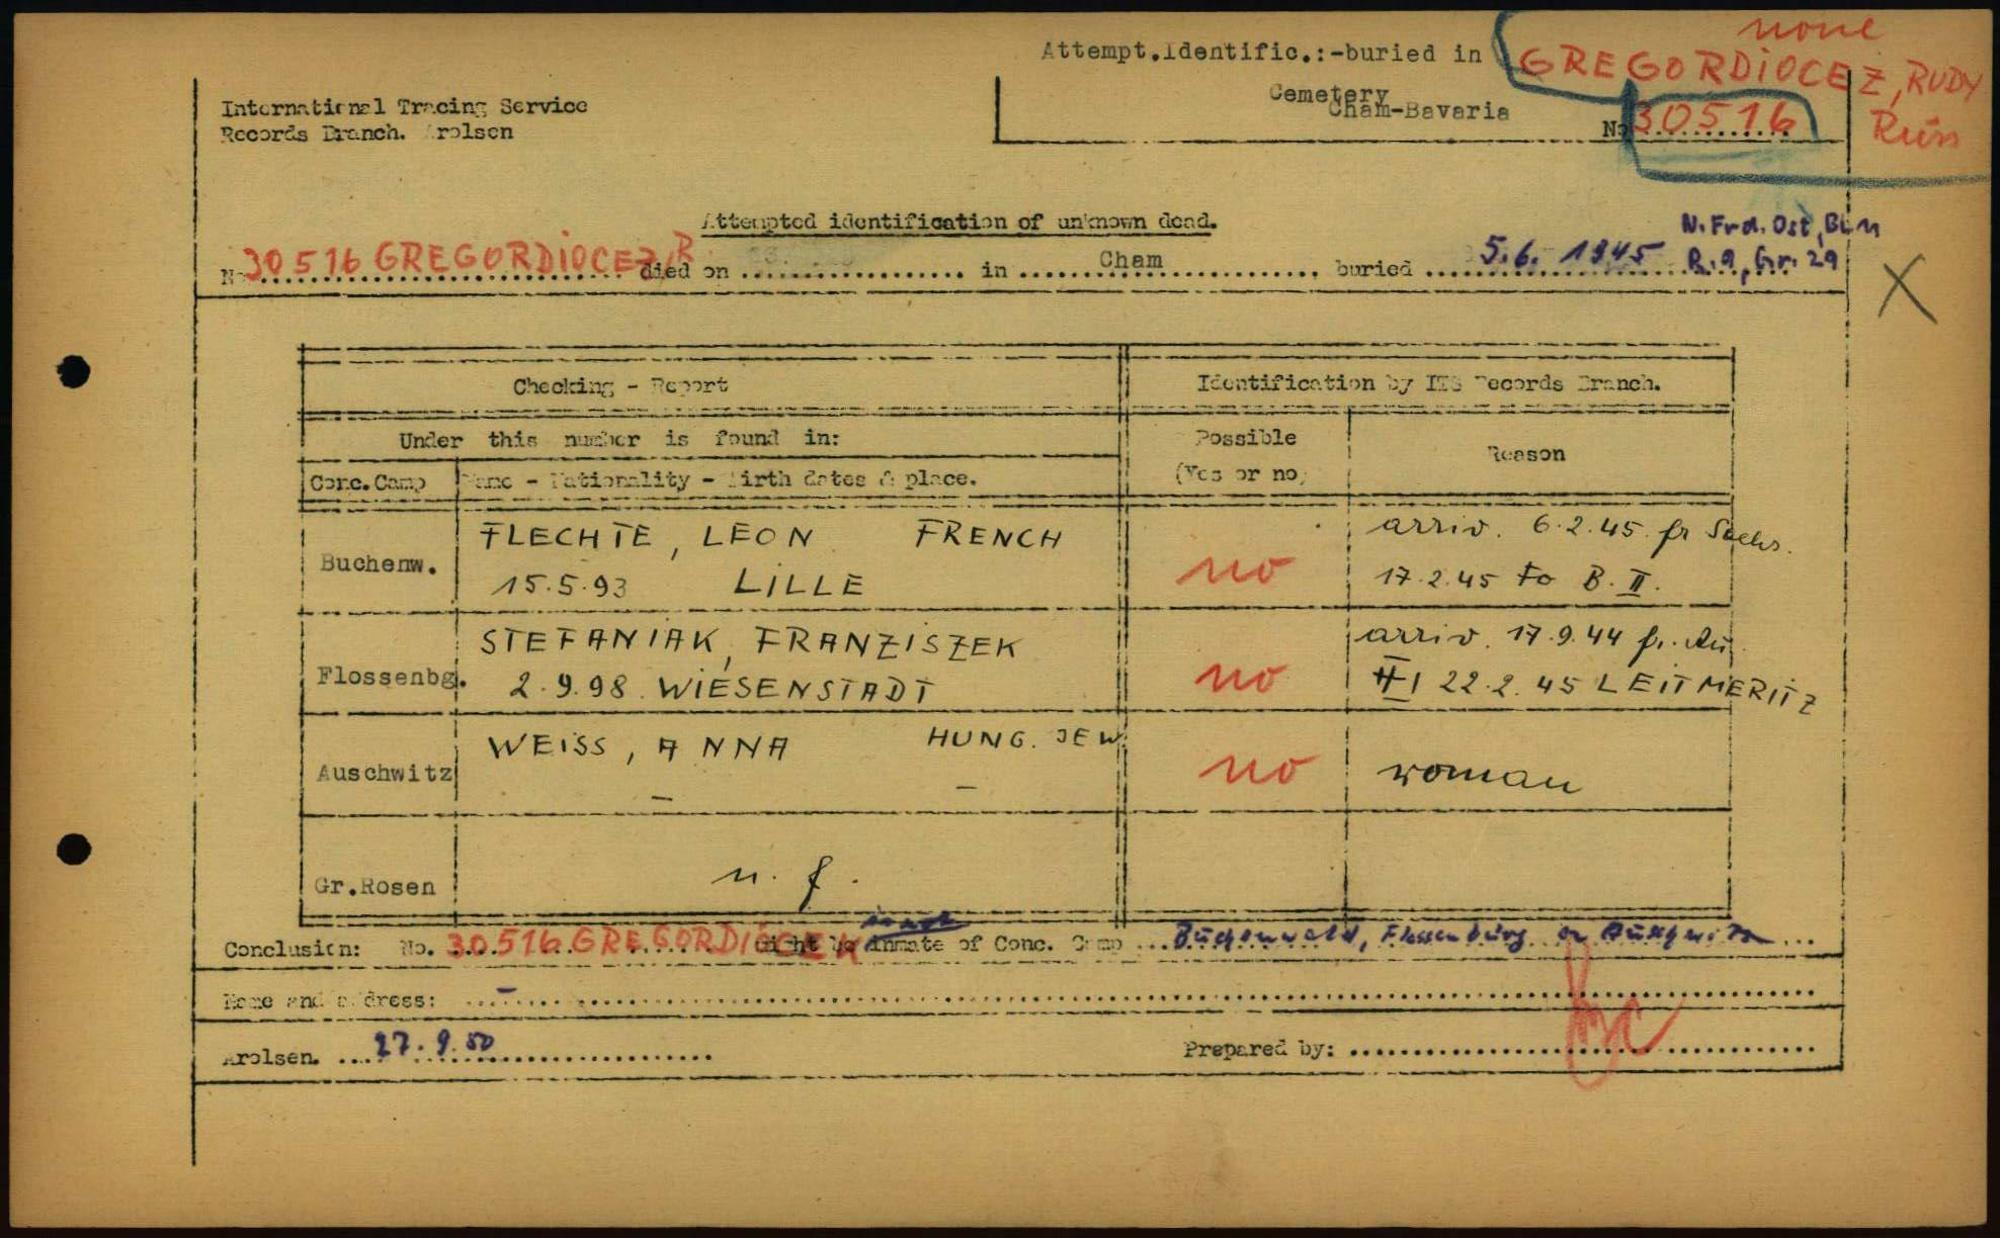 none
Attempt.Identific.:-buried in GREGORDIOCEZ, RUDY
Cemetery
Cham-Bavaria
No 30516
Rus
International Tracing Service
Records Branch. Arolsen
Attempted identification of unknown dead.
N. Frd. Ost, Bl. M
No 30516 GREGORDIOCEZ, R died on .................. in ...... Cham ............ buried ...... 5.6. 1945 R. 9, Gr. 29
X
Checking - Report
Identification by ITS Records Branch.
Under this number is found in:
Possible
(Yes or no)
Reason
Conc.Camp
Name - Nationality - Birth dates & place.
Buchenw.
FLECHTE, LEON FRENCH
15.5.93 LILLE
no
arriv. 6.2.45 fr Sachs.
17.2.45 to B. II.
Flossenbg.
STEFANIAK, FRANZISZEK
2.9.98 WIESENSTADT
no
arriv. 17.9.44 fr. Au
22.2.45 LEITMERITZ
Auschwitz
WEISS, ANNA HUNG. JEW.
- -
no
woman
Gr.Rosen
n. f.
Conclusion: No. 30516 GREGORDIOCEK might be inmate of Conc. Camp ... Buchenwald, Flossenbürg or Auschwitz ...
Name and address: ... - ...
Arolsen. .... 27.9.50 ....................
Prepared by: ........................